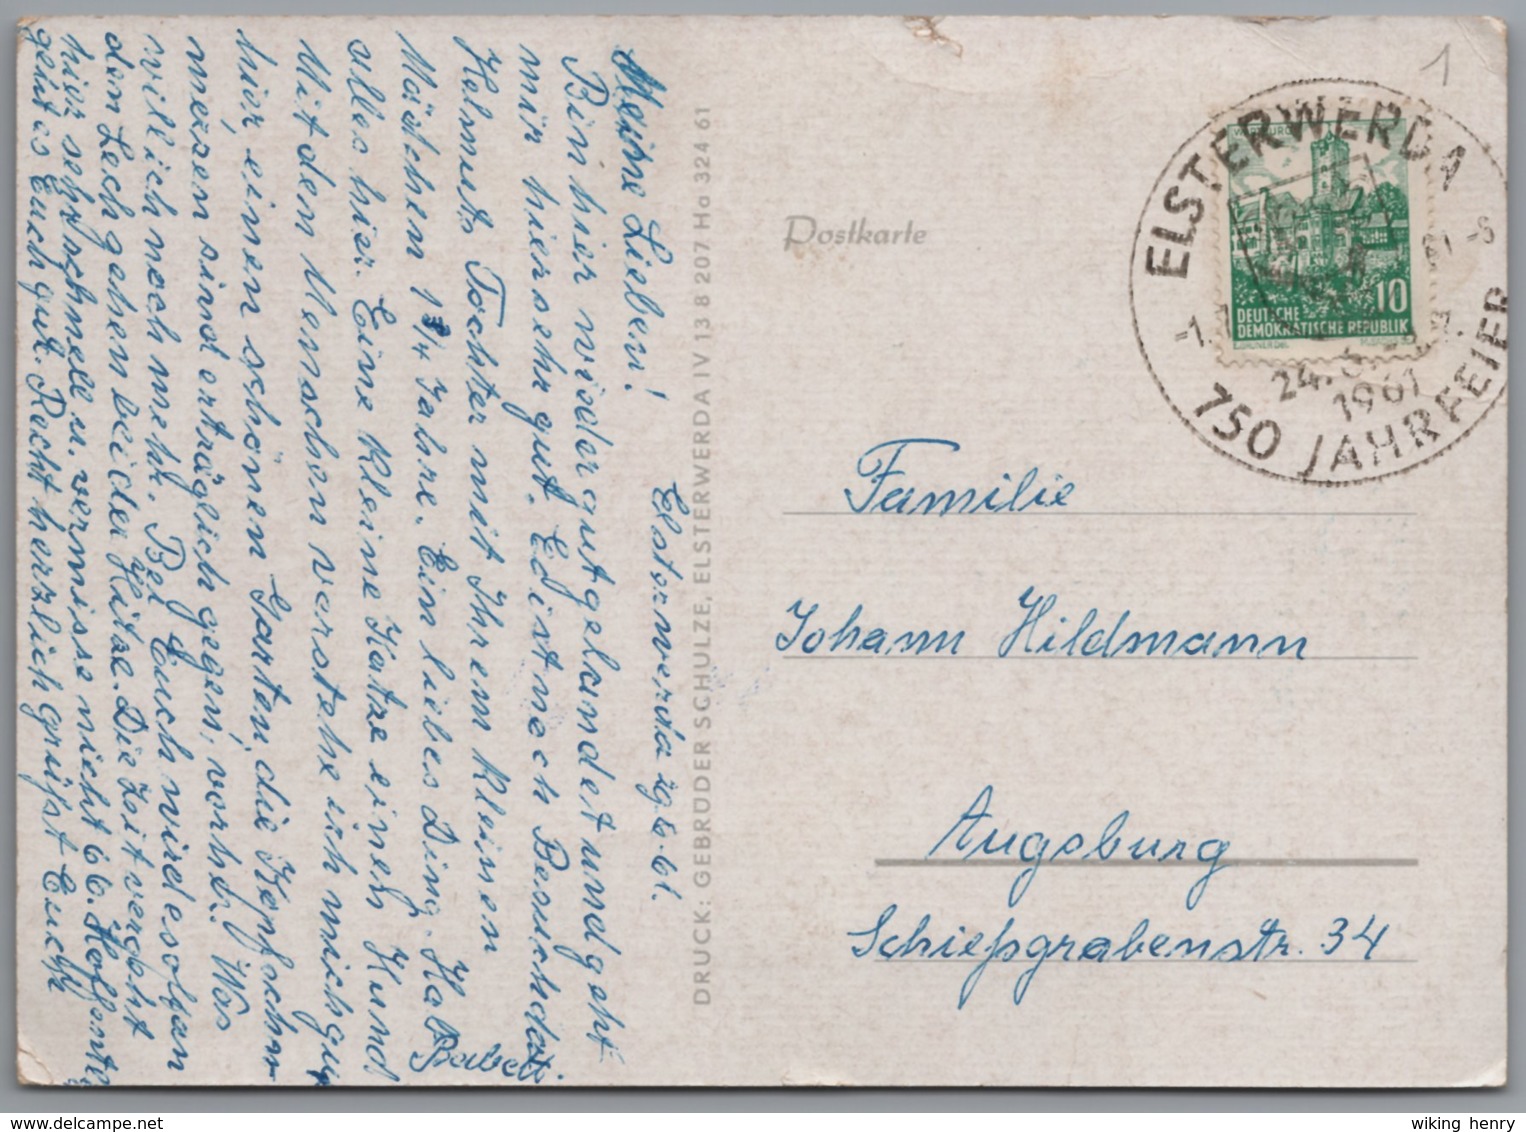 Meine Lieben!
Elsterwerda 29.6.61.
Bin hier wieder gut gelandet und geht
mir hier sehr gut. Edist nach Besuch da
Helmuts Tochter mit Ihrem kleinen
Mädchen 1 3/4 Jahre. Ein liebes Ding. Hab
alles hier. Eine kleine Katze einen Hund
Mit den Menschen verstehe ich mich gut
hier, einen schönen Garten, die Kopfschm
merzen sind erträglich gegen, vorher. Was
will ich noch mehr. Bei Euch wird es olgan
dem Lech gehen bei der Hitze. Die Zeit vergeht
hier sehr schnell u. vermisse nicht 66. Hoffentl
geht es Euch gut. Recht herzlich grüßt Euch
Babett
DRUCK: GEBRÜDER SCHULZE, ELSTERWERDA IV 13 8 207 Ha 324 61
Postkarte
1
ELSTERWERDA
24.6.
1961
750 JAHRFEIER
10
DEUTSCHE
DEMOKRATISCHE REPUBLIK
Familie
Johann Hildmann
Augsburg
Schießgrabenstr. 34
wiking henry